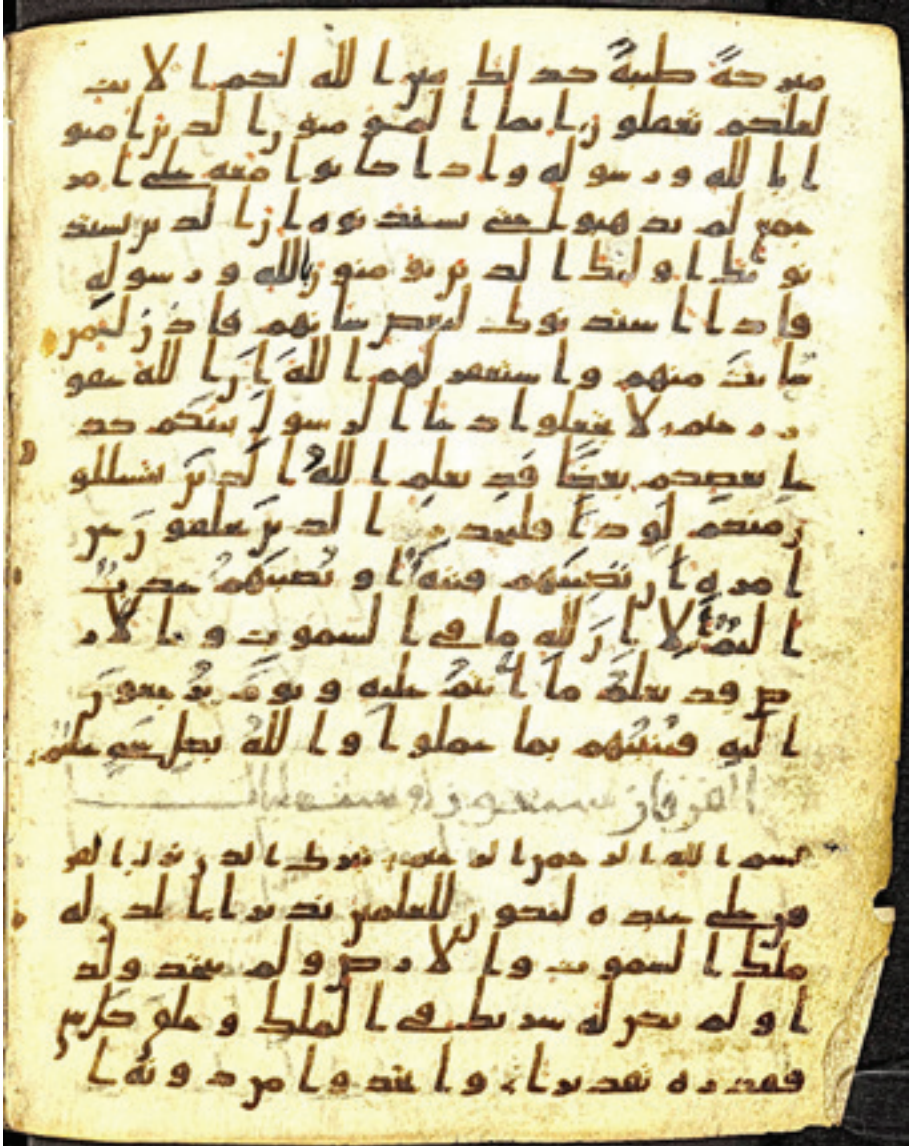 مبركةً طيبةً كذلك يبين الله لكم الايت
لعلكم تعقلون انما المومنون الذين امنو
ا بالله ورسوله واذا كانوا معه على امر
جمع لم يذهبوا حتى يستذنوه ان الذين يستذ
نونك اولئك الذين يومنون بالله ورسوله
فاذا استذنوك لبعض شانهم فاذن لمن
شئت منهم واستغفر لهم الله ان الله غفو
ر رحيم لا تجعلوا دعا الرسول بينكم كد
عا بعضكم بعضًا قد يعلم الله الذين يتسللو
ن منكم لواذا فليحذر الذين يخلفون عن
امره ان تصيبهم فتنة او يصيبهم عذب
اليم الا ان لله ما في السموت والار
ض قد يعلم ما انتم عليه ويوم يرجعون
اليه فينبئهم بما عملوا والله بكل شي عليم
الفرقان سبعون
بسم الله الرحمن الرحيم تبرك الذي نزل الفر
قن على عبده ليكون للعلمين نذيرا الذي له
ملك السموت والارض ولم يتخذ ولد
ا ولم يكن له شريك في الملك وخلق كل شي
فقدره تقديرا واتخذوا من دونه ا